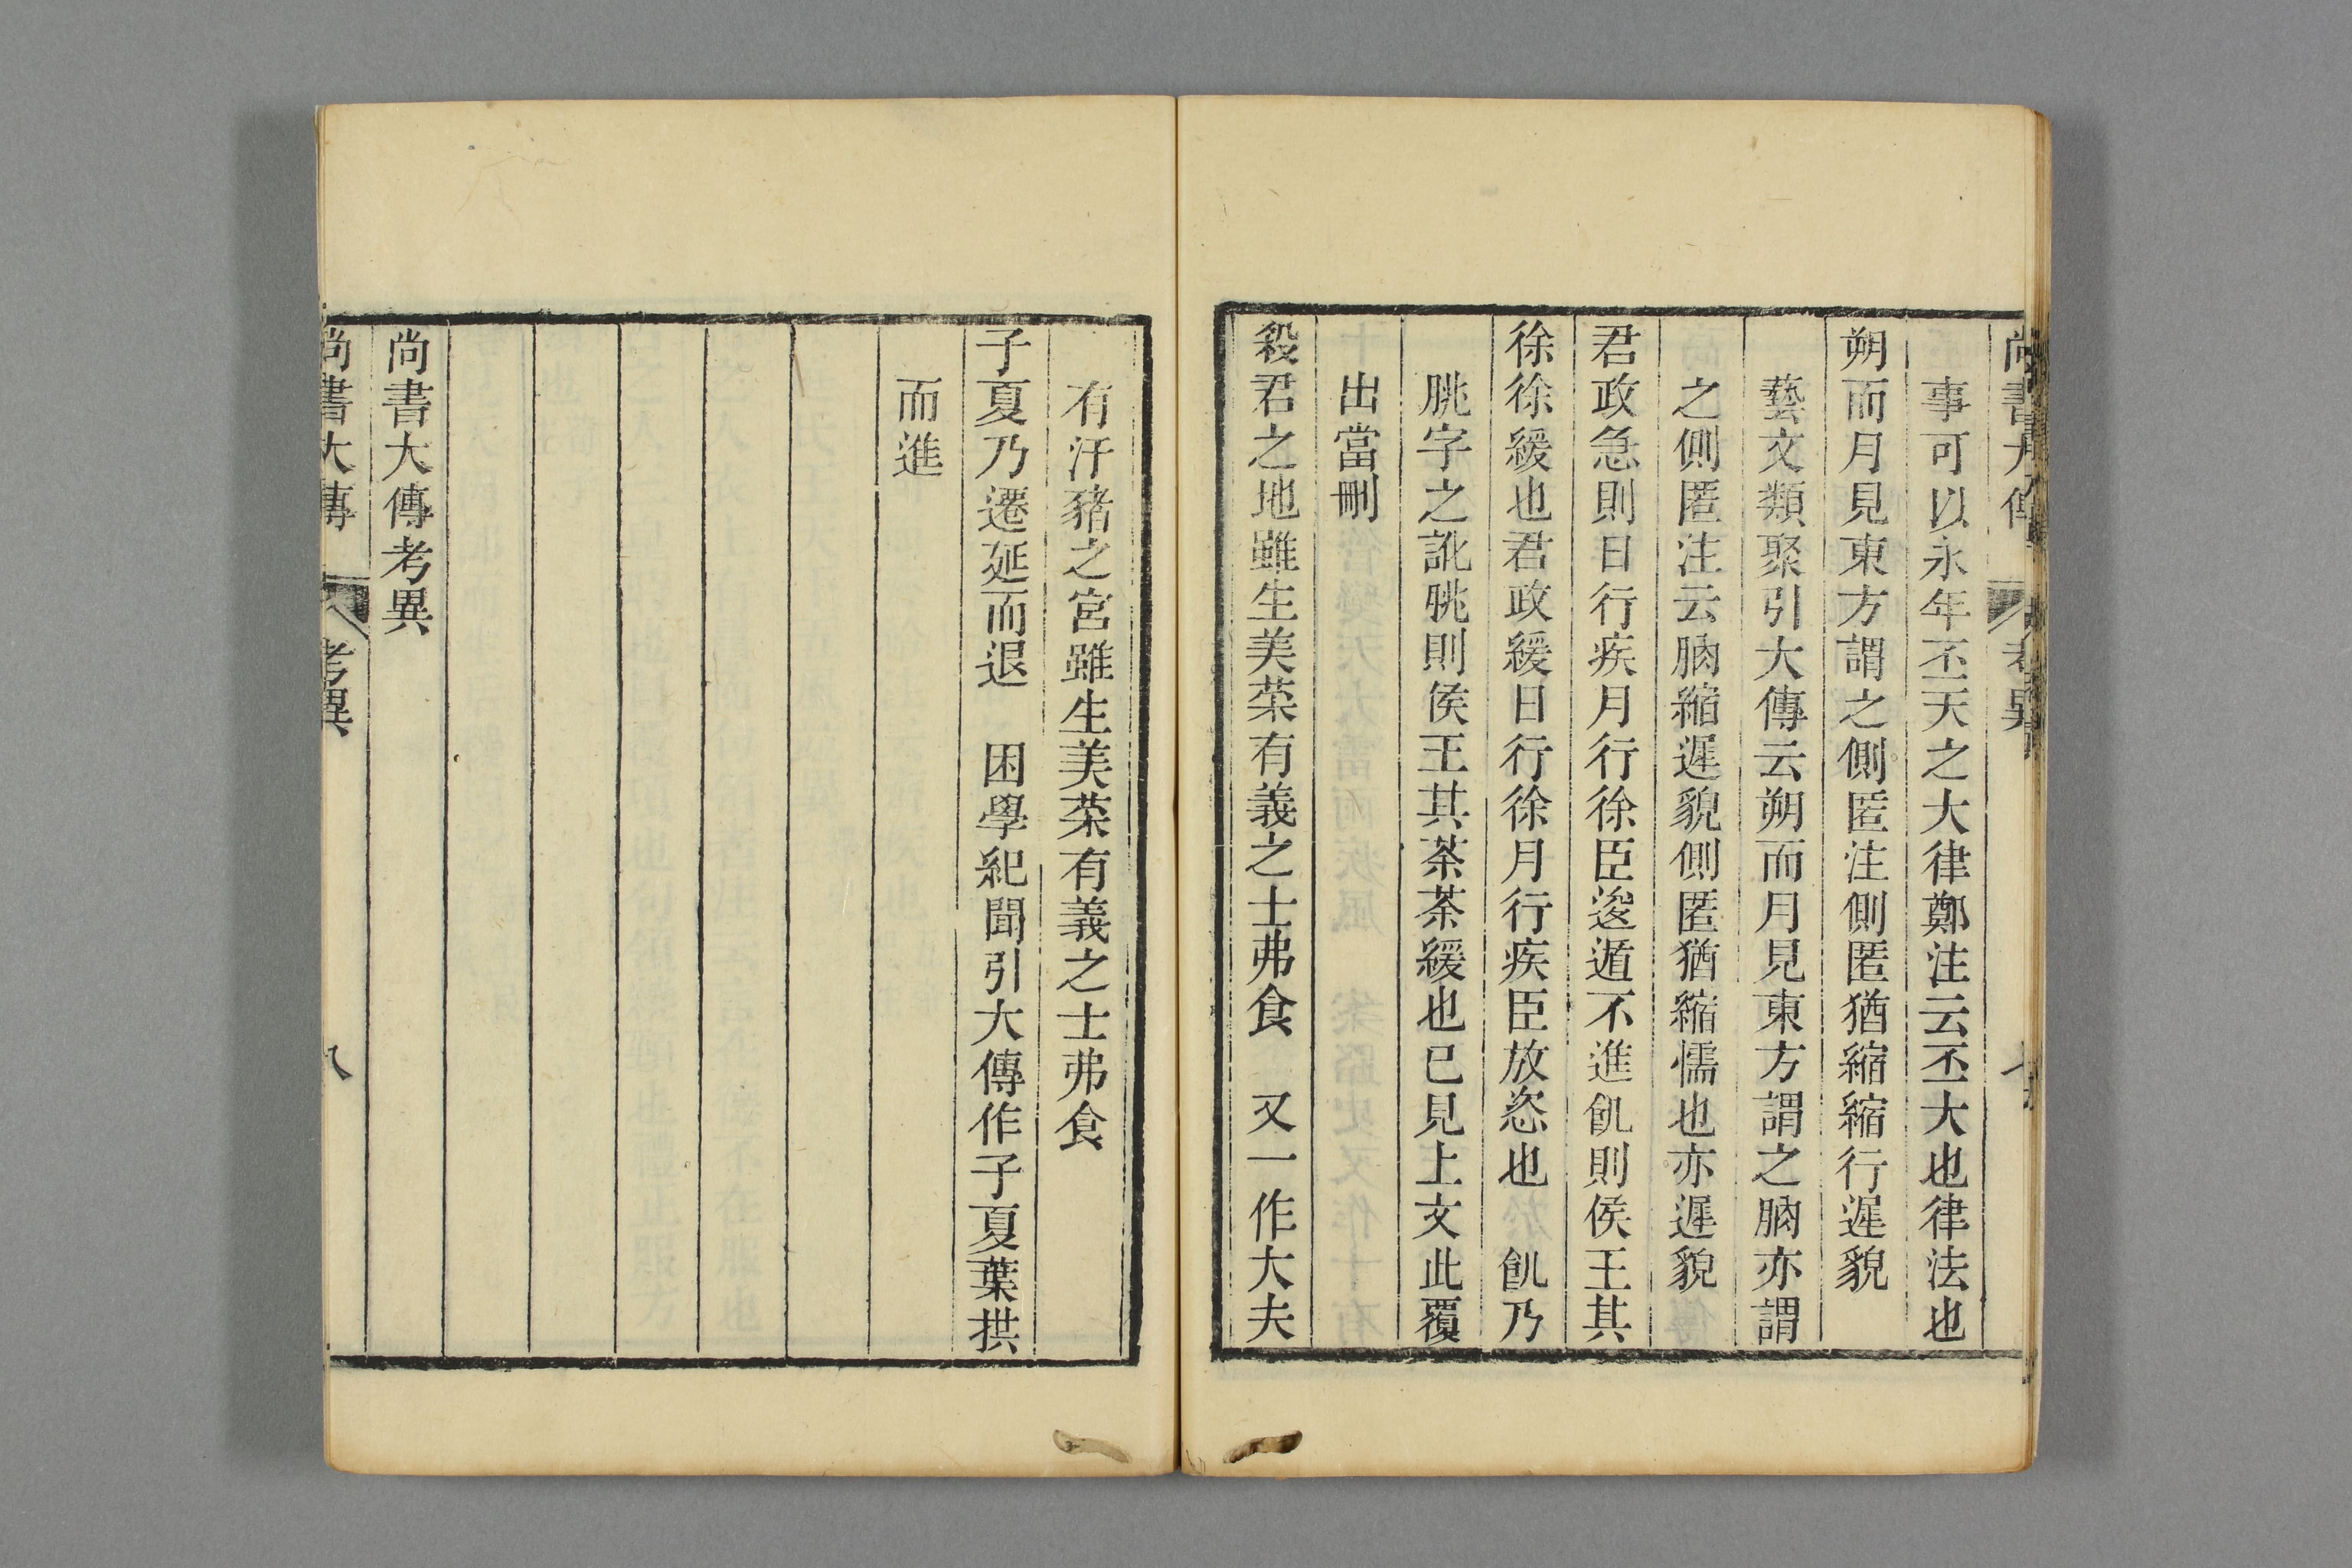 尚書大傳 考異 七
事可以永年丕天之大律鄭注云丕大也律法也
朔而月見東方謂之側匿注側匿猶縮縮行遲貌
藝文類聚引大傳云朔而月見東方謂之朒亦謂
之側匿注云朒縮遲貌側匿猶縮懦也亦遲貌
君政急則日行疾月行徐臣逡遁不進飢則侯王其
徐徐緩也君政緩日行徐月行疾臣放恣也 飢乃
朓字之訛朓則侯王其荼荼緩也已見上文此覆
出當刪
殺君之地雖生美菜有義之士弗食 又一作大夫
有汙豬之宮雖生美菜有義之士弗食
子夏乃遷延而退 困學紀聞引大傳作子夏葉拱
而進
尚書大傳考異
尚書大傳 考異 八